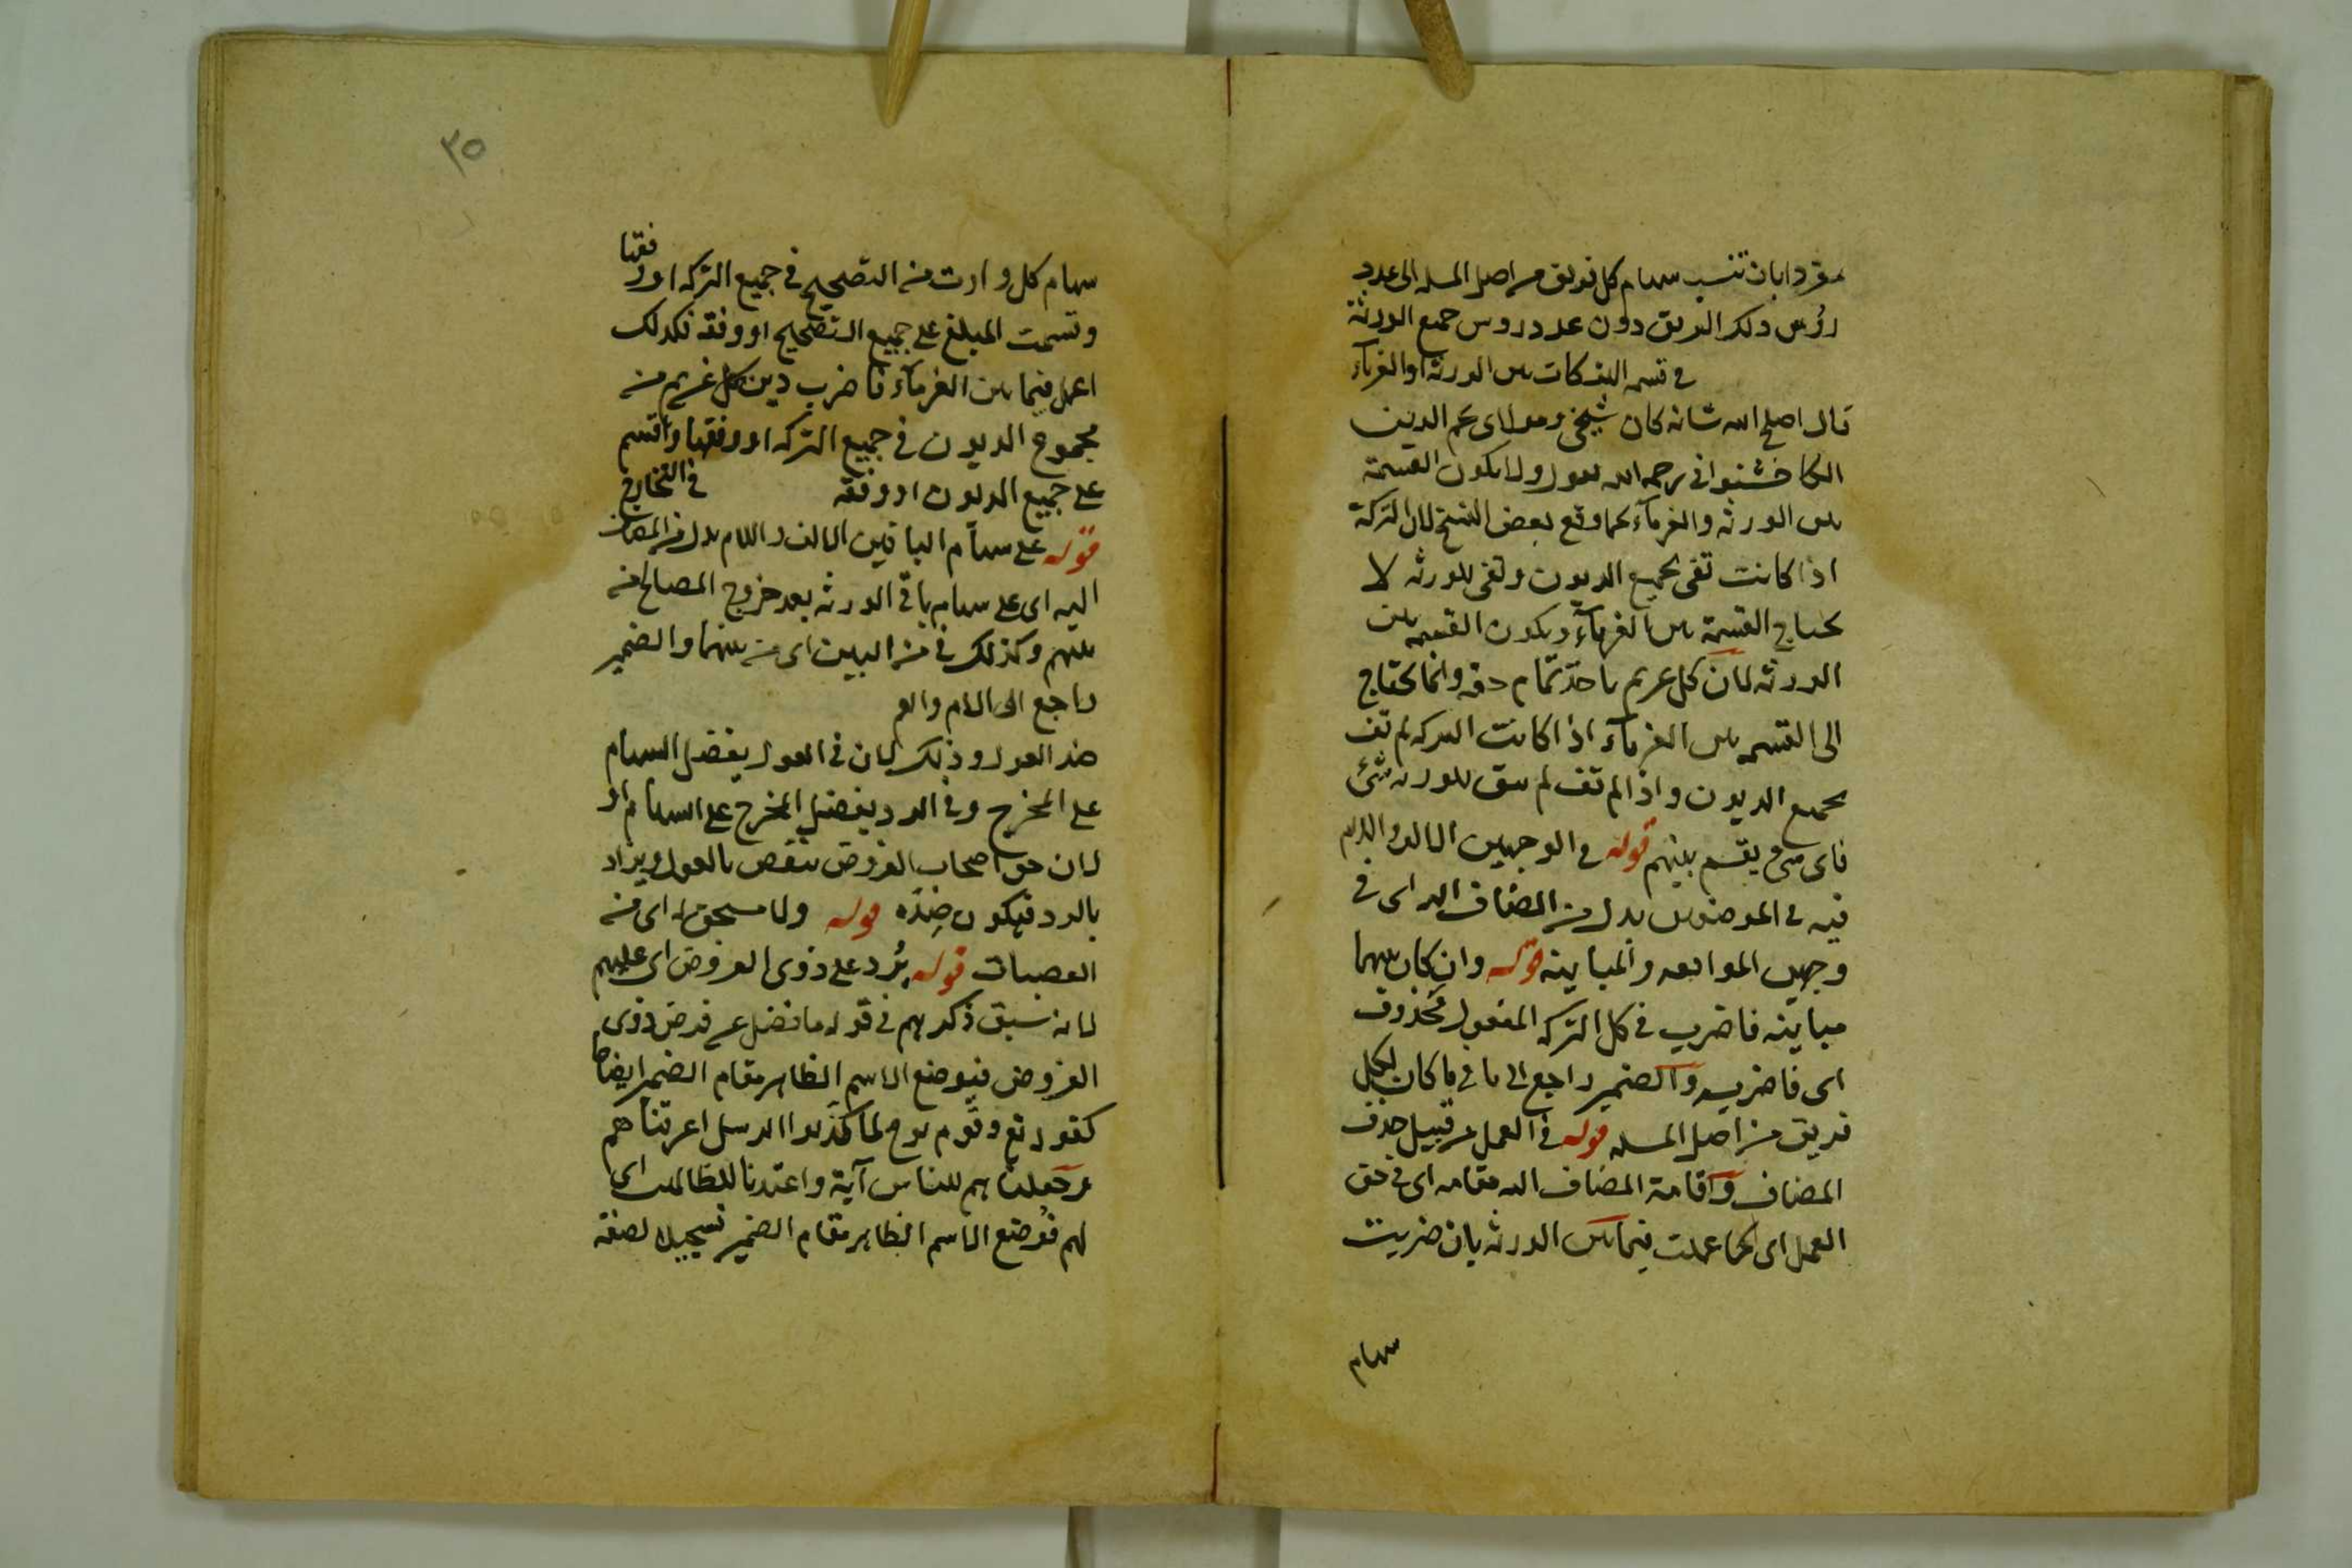 مفردا بان تنسب سهام كل فريق من اصل المسله الى عدد
رؤس ذلك الفريق دون عدد روس جميع الورثة
فى قسمه التركات بين الورثة او الغرمآء
قال اصلح الله شانه كان شيخى ومولاى نجم الدين
رحمه الله يقول ولا يكون القسمة
بين الورثه والغرمآء كما وقع بعض النسخ لان التركة
اذا كانت تفى بجميع الديون وتفى للورثه لا
يحتاج القسمة بين الغرمآء ويكون القسمه بين
الورثه لان كل غريم ياخذ تمام حقه وانما يحتاج
الى القسمه بين الغرمآء اذا كانت التركه لم تف
بجميع الديون واذا لم تف لم يبق للورثه شئ
فاى شئ يقسم بينهم قوله فى الوجهين الالف واللام
فيه فى الموضعين بدل من المضاف اليه اى فى
وجهى الموافقه والمباينه قوله وان كان بينهما
مباينه فاضرب فى كل التركه المفعول محذوف
اى فاضربه والضمير راجع الى ما فى ما كان لكل
فريق من اصل المسله قوله فى العمل من قبيل حذف
المضاف واقامة المضاف اليه مقامه اى فى حق
العمل اى كما عملت فيما بين الورثه بان ضربت
سهام
٣٥
سهام كل وارث من التصحيح فى جميع التركه او وفقها
وقسمت المبلغ على جميع التصحيح او وفقه فكذلك
اعمل فيما بين الغرمآء فاضرب دين كل غريم من
مجموع الديون فى جميع التركه او وفقها واقسم
على جميع الديون او وفقه فى التخارج
قوله على سهام الباقين الالف واللام بدل من المضاف
اليه اى على سهام باقى الورثه بعد خروج المصالح من
بينهم وكذلك فى من البين اى من بينهما والضمير
راجع الى الام والعم
ضد العول وذلك لان فى العول يفضل السهام
على المخرج وفى الرد يفضل المخرج على السهام او
لان حق اصحاب الفروض ينقص بالعول ويزاد
بالرد فيكون ضده قوله ولا مستحق له اى من
العصبات قوله يرد على ذوى الفروض اى عليهم
لانه سبق ذكرهم فى قوله ما فضل عن فرض ذوى
الفروض فيوضع الاسم الظاهر مقام الضمير ايضا
كقوله تع وقوم نوح لما كذبوا الرسل اغرقناهم
وجعلناهم للناس آية واعتدنا للظالمين اى
لهم فوضع الاسم الظاهر مقام الضمير تسجيلا لصفه